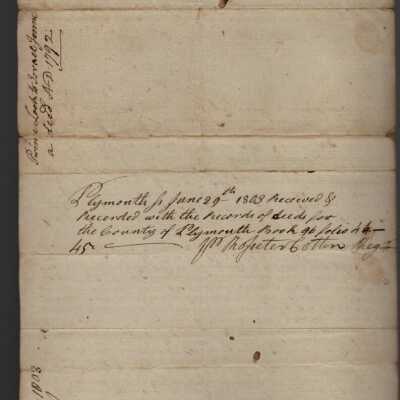 a deed AD 1792
Plymouth ss June 29th 1803 Received &
Recorded with the Records of deeds for
the County of Plymouth Book 96 folio 44
45 Rositer Cotton Regr
1803